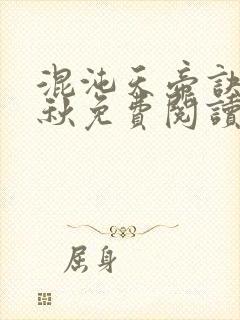 混沌天帝訣
秋免費閱讀
屈身